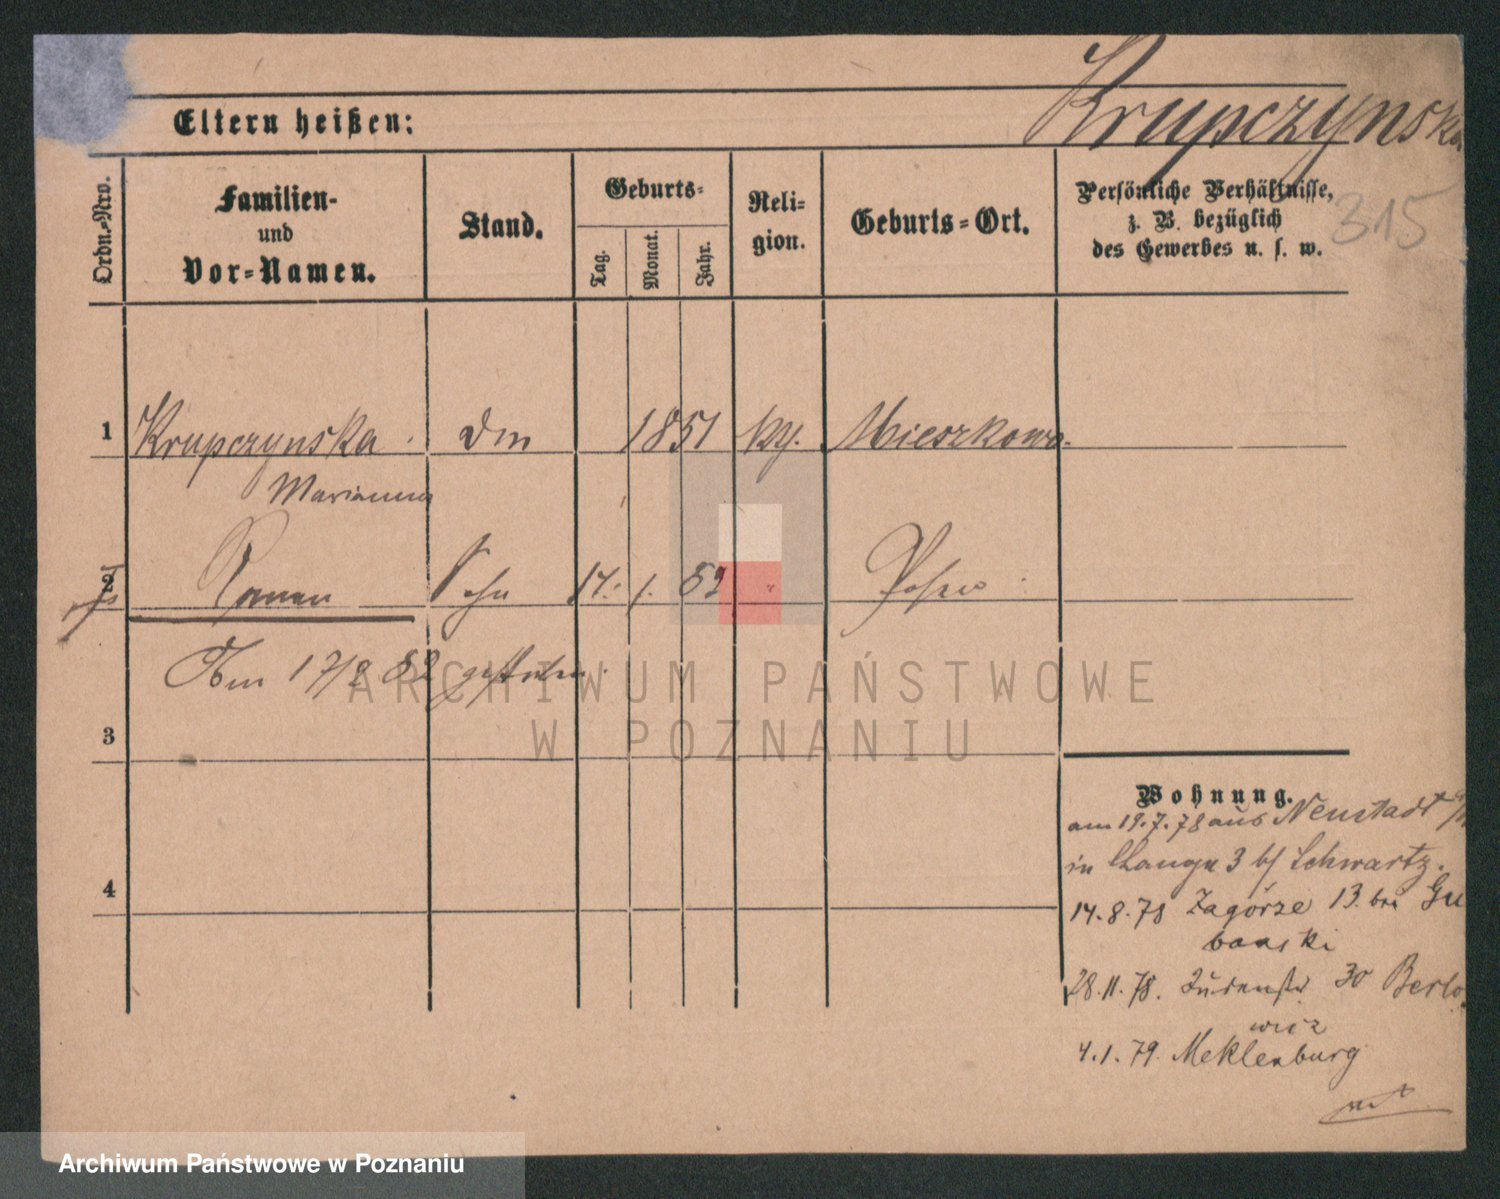 Krupczynska
315
Eltern heißen:
Ordn.-Nro.
Familien-
und
Vor-Namen.
Stand.
Geburts-
Tag.
Monat.
Jahr.
Reli-
gion.
Geburts-Ort.
Persönliche Verhältnisse,
z. B. bezüglich
des Gewerbes u. s. w.
1 Krupczynska 1851 Mieszkowo
Marianna
2 Roman Sohn 14. 1. 82 " Posen
Am 17/2 82 gestorben.
ARCHIWUM PAŃSTWOWE
W POZNANIU
3
Wohnung.
am 19.7.78 aus Neustadt
in 3 b/ Schwartz.
4
14.8.78 Zagórze 13. bei Gu
28.11.78. Judenstr 30 Berlo
wicz
4.1.79. Meklenburg
Archiwum Państwowe w Poznaniu